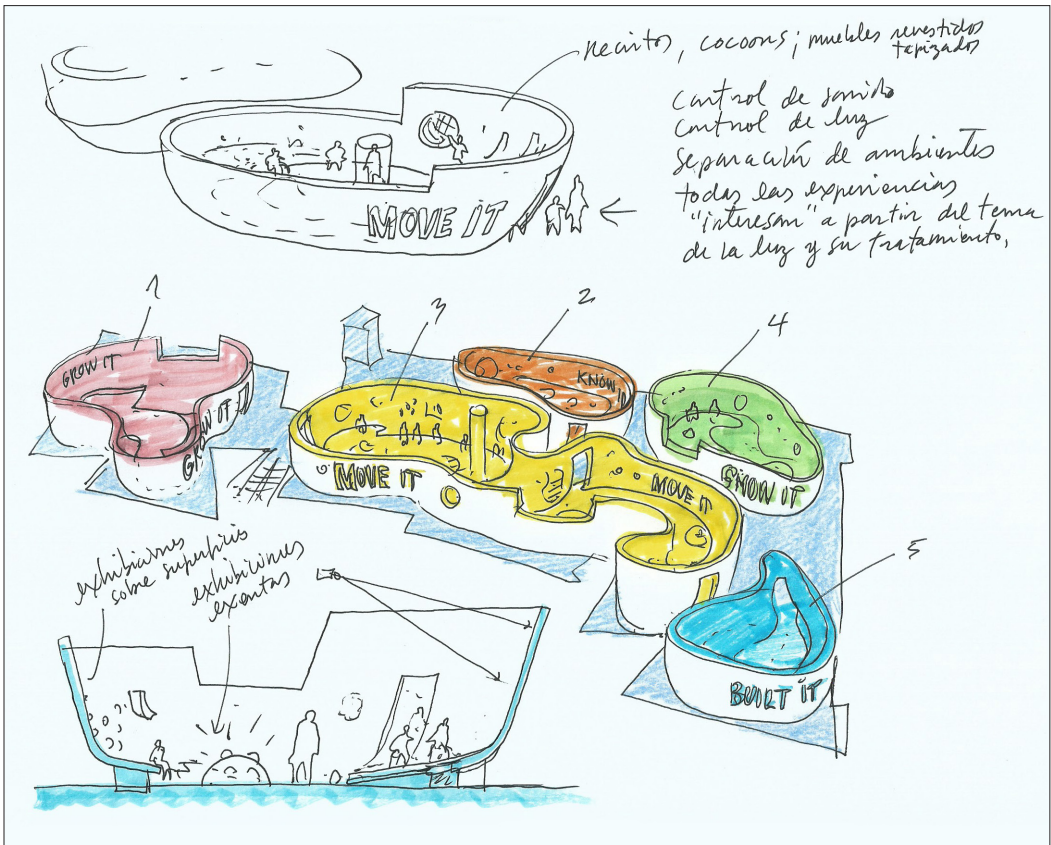 recintos, cocoons; muebles revestidos
tapizados
Control de sonido
control de luz
separación de ambientes
todas las experiencias
"interesan" a partir del tema
de la luz y su tratamiento,
MOVE IT
1
3
2
4
GROW IT
GROW IT
KNOW IT
MOVE IT
MOVE IT
SHOW IT
5
exhibiciones
sobre superficie
exhibiciones
exentas
BUILT IT